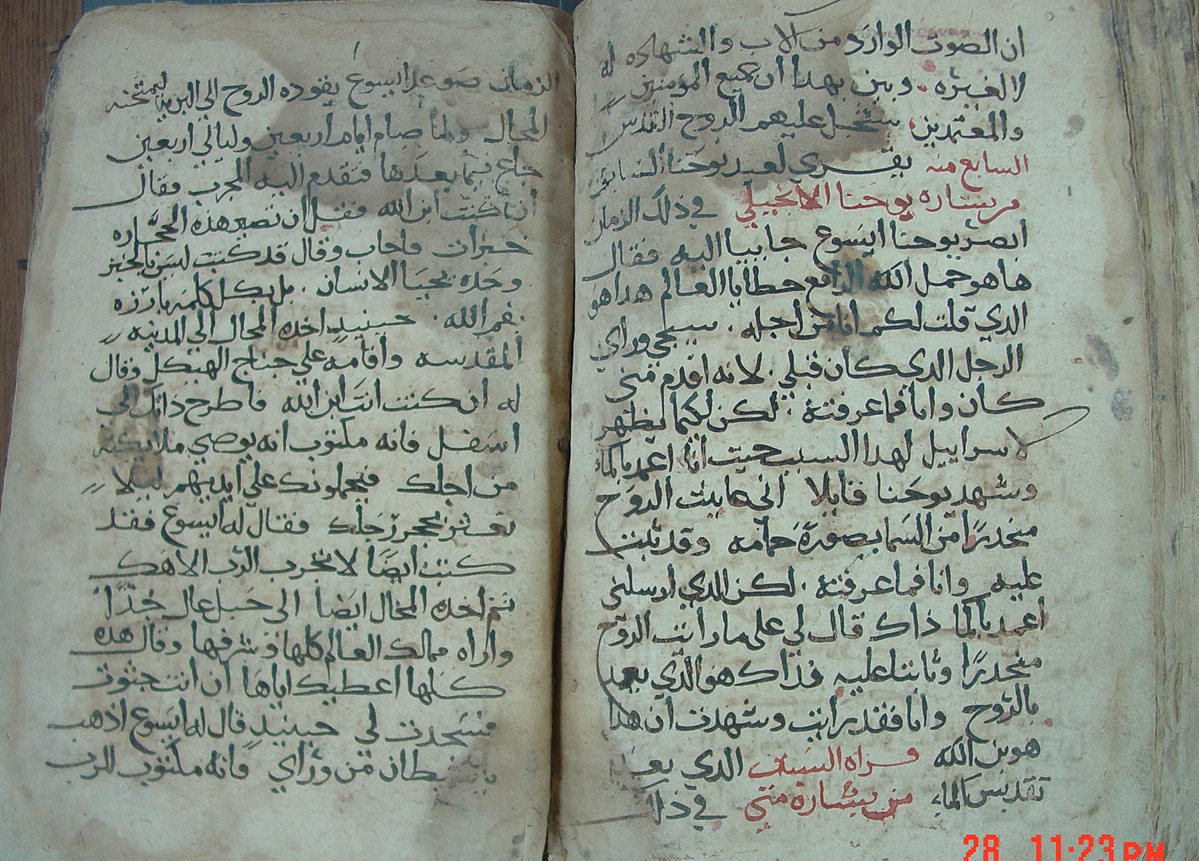 ان الصوت الوارد من الاب والشهاده له
لا لغيره. وبين بهدا ان جميع المومنين
والمعتمدين ستحل عليهم الروح القدس
السابع منه يقري لعيد يوحنا السابق
من بشاره يوحنا الانجيلي في دلك الزمان
ابصر يوحنا ايسوع جاييا اليه فقال
ها هو حمل الله الرافع خطايا العالم هدا هو
الدي قلت لكم انا من اجله. سيجي وراي
الرجل الدي كان قبلي. لانه اقدم مني
كان وانا فما عرفتة. لكن لكيما يظهر
لاسراييل لهدا السبب جيت انا اعمد بالما
وشهد يوحنا قايلا اني عاينت الروح
منحدرًا من السما بصورة حمامه وقد ثبتت
عليه وانا فما عرفتة. لكن الدي ارسلني
اعمد بالما داك قال لي على ما رايت الروح
منحدرًا وثابتا عليه فداك هو الدي يعمد
بالروح وانا فقد رايت وشهدت ان هدا
هو بن الله قراة السبت الدي بعد
تقديس الماء من بشارة متى في دلك
الزمان صعد ايسوع يقوده الروح الي البريه ليمتحنه
المحال ولما صام ايام اربعين وليالي اربعين
جاع فيما بعدها فتقدم اليه المجرب فقال
ان كنت ابن الله فقل ان تصير هذه الحجاره
خبزان فاجاب وقال قد كتب ليس بالخبز
وحده يحيا الانسان. بل بكل كلمه بارزه
فم الله. حينيدٍ اخده المحال الي المدينه
المقدسه واقامه علي جناح الهيكل وقال
له ان كنت انت ابن الله فاطرح داتك الى
اسفل فانه مكتوب انه يوصي ملايكته
من اجلك فيحملونك علي ايديهم ليلا
تعثر بحجر رجلك فقال له ايسوع فقد
كتب ايضًا لا تجرب الرب الاهك
ثم اخده المحال ايضا الى جبل عال جدًا
واراه ممالك العالم كلها وشرفها وقال هده
كلها اعطيك اياها ان انت جثوت
فسجدت لي حينيدٍ قال له ايسوع ادهب
يا شيطان من وراي فانه مكتوب للرب
28 11:23 PM